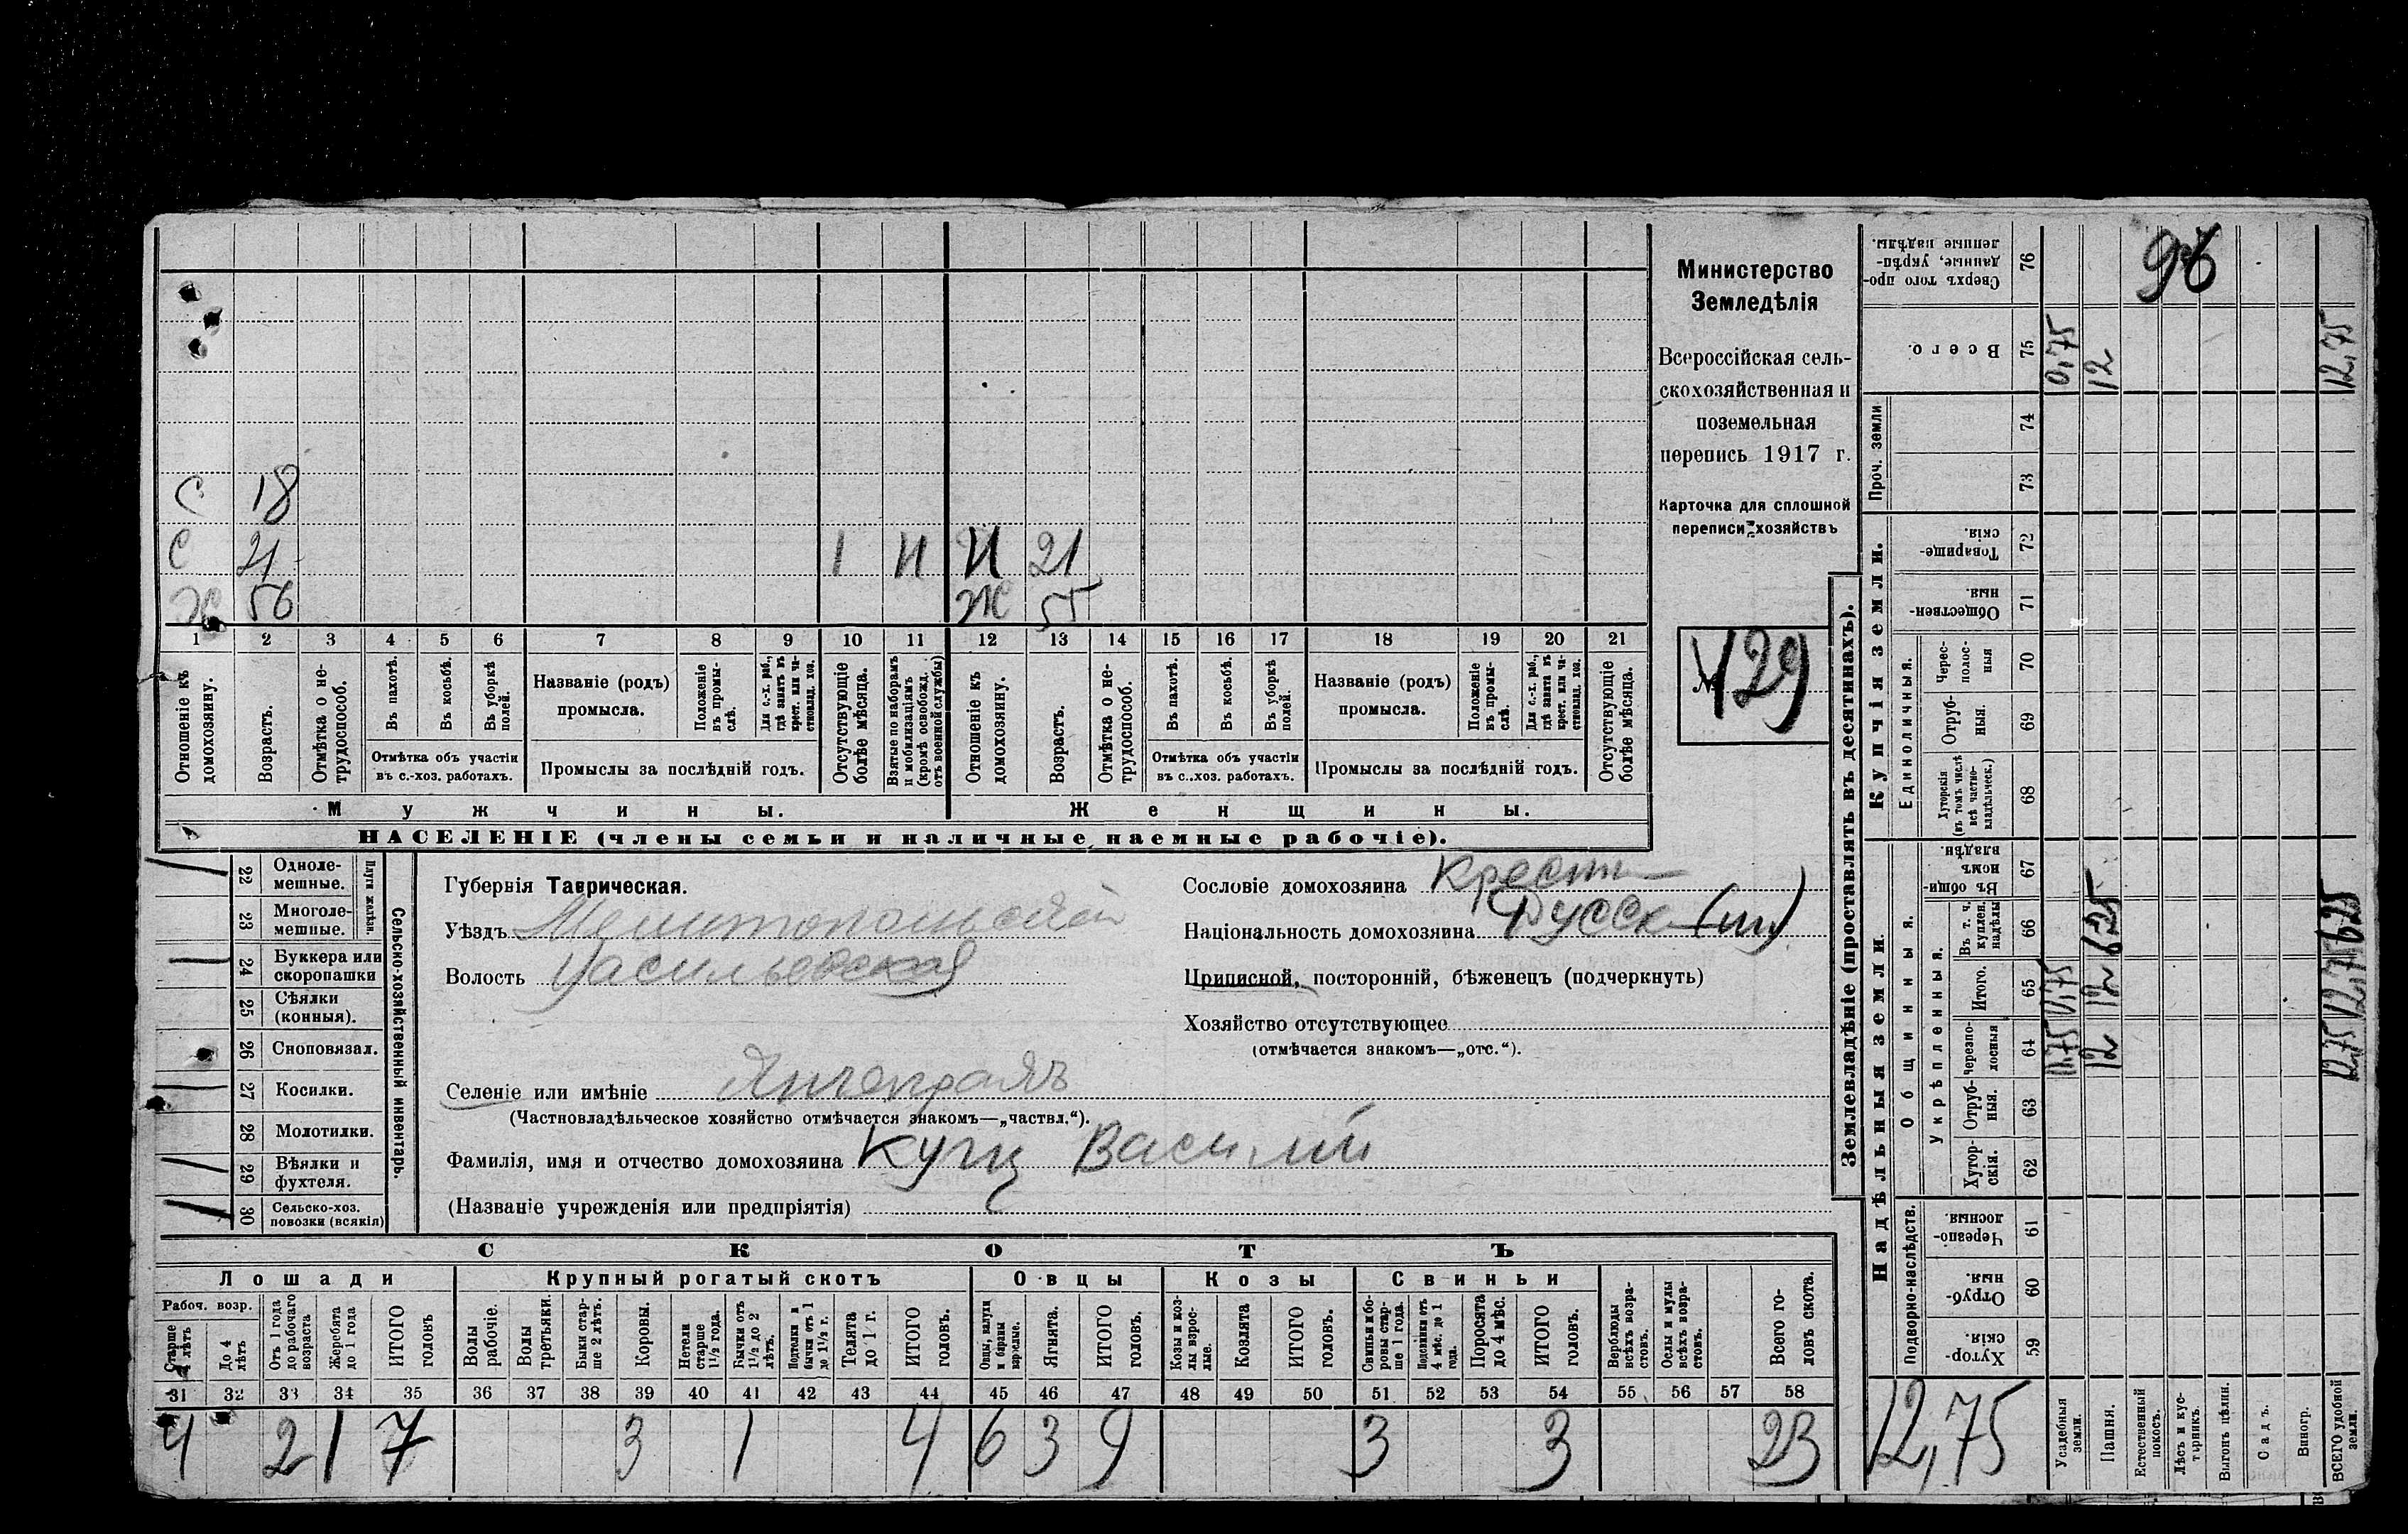 С 18
С 21 1 И И 21
Ж 56 Ж 55
1 2 3 4 5 6 7 8 9 10 11 12 13 14 15 16 17 18 19 20 21
Отношеніе къ домохозяину.
Возрастъ.
Отмѣтка о нетрудоспособ.
Въ пахотѣ.
Въ косьбѣ.
Въ уборкѣ полей.
Отмѣтка объ участіи
въ с.-хоз. работахъ.
Названіе (родъ)
промысла.
Положеніе въ промыслѣ.
Для с.-х. раб., гдѣ занятъ въ крест. или частновлад. хоз.
Промыслы за послѣдній годъ.
Отсутствующіе болѣе мѣсяца.
Взятые по наборамъ и мобилизаціямъ (кромѣ освобожд. отъ военной службы)
Отношеніе къ домохозяину.
Возрастъ.
Отмѣтка о нетрудоспособ.
Въ пахотѣ.
Въ косьбѣ.
Въ уборкѣ полей.
Отмѣтка объ участіи
въ с.-хоз. работахъ.
Названіе (родъ)
промысла.
Положеніе въ промыслѣ.
Для с.-х. раб., гдѣ занята въ крест. или частновлад. хоз.
Промыслы за послѣдній годъ.
Отсутствующіе болѣе мѣсяца.
Мужчины. Женщины.
НАСЕЛЕНІЕ (члены семьи и наличные наемные рабочіе).
Министерство
Земледѣлія
Всероссійская сель-
скохозяйственная и
поземельная
перепись 1917 г.
Карточка для сплошной
переписи хозяйствъ
№ 129
Сельско-хозяйственный инвентарь.
Плуги желѣзн.
22 Одноле-
мешные.
23 Многоле-
мешные.
24 Буккера или
скоропашки
25 Сѣялки
(конныя).
26 Сноповязал.
27 Косилки.
28 Молотилки.
29 Вѣялки и
фухтеля.
30 Сельско-хоз.
повозки (всякія)
Губернія Таврическая.
Уѣздъ Мелитопольскій
Волость Васильевская
Селеніе или имѣніе
(Частновладѣльческое хозяйство отмѣчается знакомъ—„частвл.“).
Фамилія, имя и отчество домохозяина Куги Василій
(Названіе учрежденія или предпріятія)
Сословіе домохозяина Крест
Національность домохозяина Русск (т)
Приписной, посторонній, бѣженецъ (подчеркнуть)
Хозяйство отсутствующее
(отмѣчается знакомъ—„отс.“).
СКОТЪ
Лошади Крупный рогатый скотъ Овцы Козы Свиньи
Рабоч. возр.
Старше 4 лѣтъ
До 4 лѣтъ
Отъ 1 года до рабочаго возраста
Жеребята до 1 года
ИТОГО головъ
Волы рабочіе.
Волы третьяки.
Быки старше 2 лѣтъ.
Коровы.
Нетели старше 1½ года.
Бычки отъ 1½ до 2 лѣтъ.
Подтелки и бычки отъ 1 до 1½ г.
Телята до 1 г.
ИТОГО головъ.
Овцы, валухи и бараны взрослые.
Ягнята.
ИТОГО головъ.
Козы и козлы взрослые.
Козлята
ИТОГО головъ.
Свиньи и боровы старше 1 года.
Подсвинки отъ 4 мѣс. до 1 года.
Поросята до 4 мѣс.
ИТОГО головъ.
Верблюды всѣхъ возрастовъ.
Ослы и мулы всѣхъ возрастовъ.
Всего головъ скота.
31 32 33 34 35 36 37 38 39 40 41 42 43 44 45 46 47 48 49 50 51 52 53 54 55 56 57 58
4 2 1 7 3 1 4 6 3 9 3 3 23
Землевладѣніе (проставлять въ десятинахъ).
Надѣльныя земли. Купчія земли.
Подворно-наслѣдств.
Общинныя.
Укрѣпленныя.
Единоличныя.
Проч. земли
59 Хуторскія.
60 Отрубныя.
61 Черезполосныя.
62 Хуторскія.
63 Отрубныя.
64 Черезполосныя
65 Итого.
66 Въ т. ч. куплен. надѣлы
67 Въ общинномъ владѣн.
68 Хуторскія (въ томъ числѣ всѣ частновладѣльческ.)
69 Отрубныя.
70 Чересполосныя
71 Общественныя.
72 Товарищескія.
73
74
75 Всего.
76 Сверхъ того проданные, укрѣпленные надѣлы.
96
12,75
Усадебныя земли. 0,75 0,75 0,75
Пашня. 12 12 6 25 12
Естественный покосъ.
Лѣсъ и кустарникъ.
Выгонъ цѣлин.
Садъ.
Виногр.
ВСЕГО удобной земли. 12,75 12,75 6 25 12,75